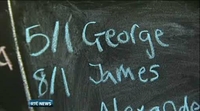 5/1 George
8/1 James
Alexander
RTÉ NEWS